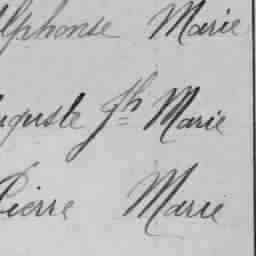 Alphonse Marie
Auguste Jh Marie
Pierre Marie